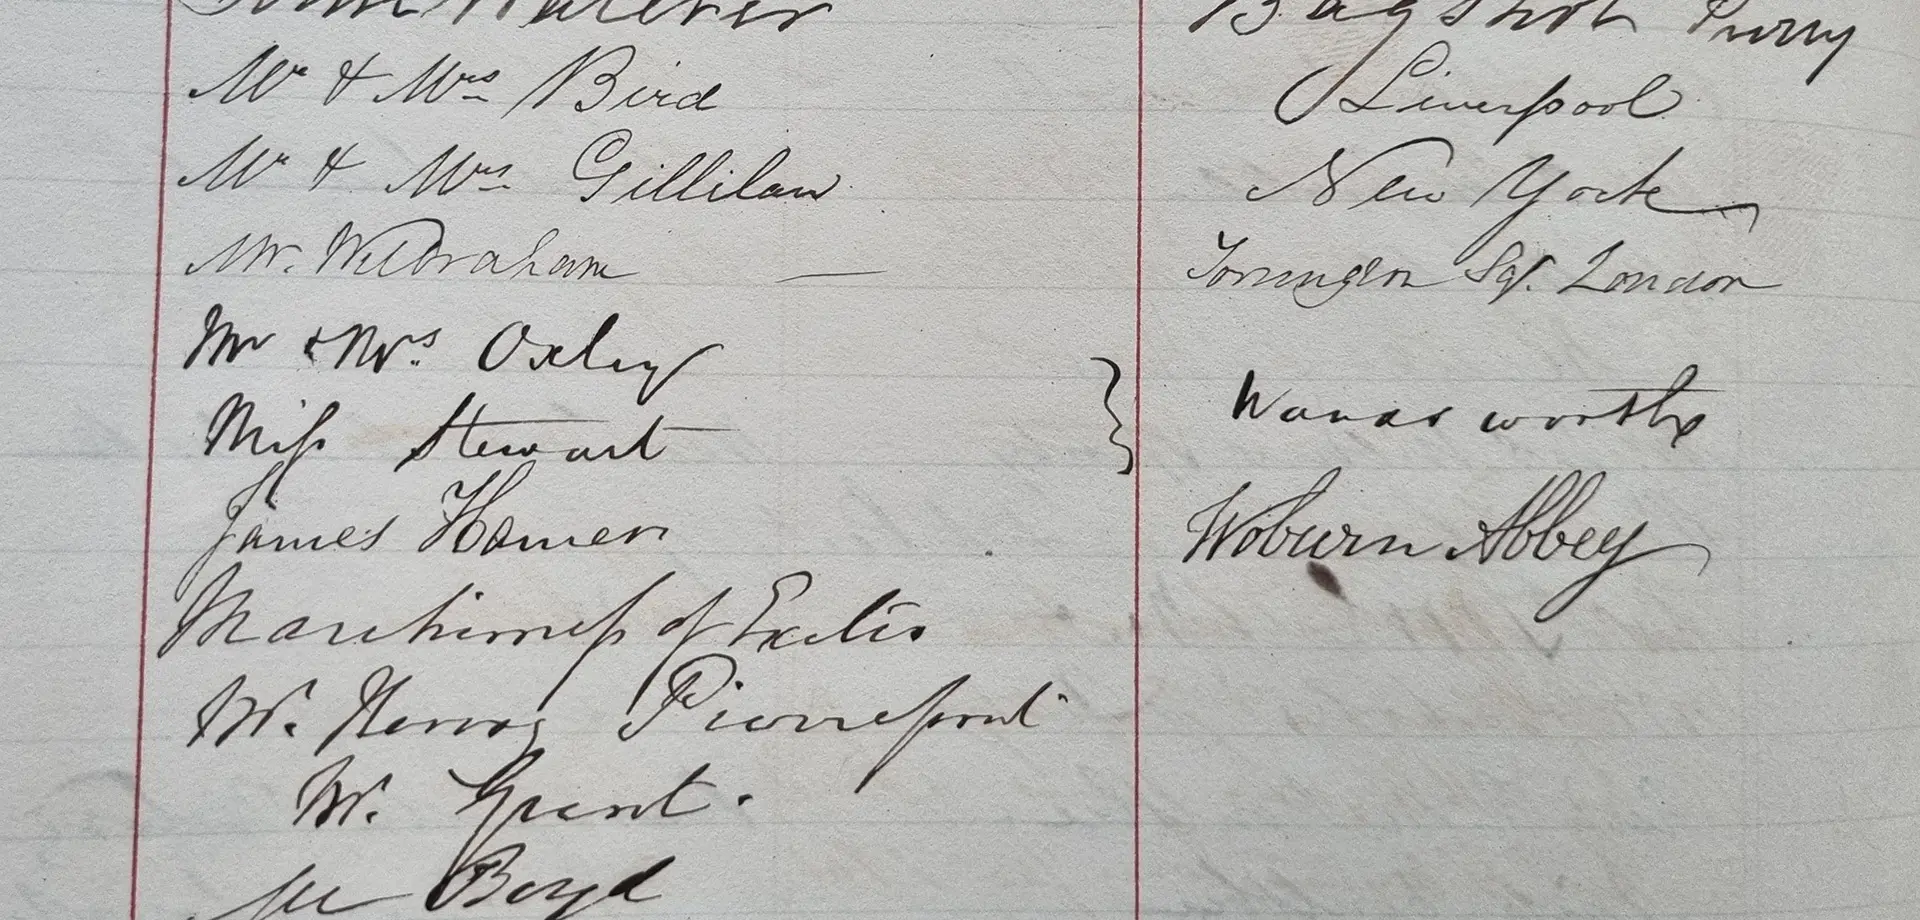 John Bagshot Surry
Mr & Mrs Bird Liverpool
Mr & Mrs Gillilan New York
Mr. Wilbraham — Sqr. London
Mr & Mrs. Oxley
Miss Stewart } Wandsworth
James Hamer Woburn Abbey
Marchioness of Exeter
Mr. Hervey Pierrepont
Mr. Grant.
Mr Boyd